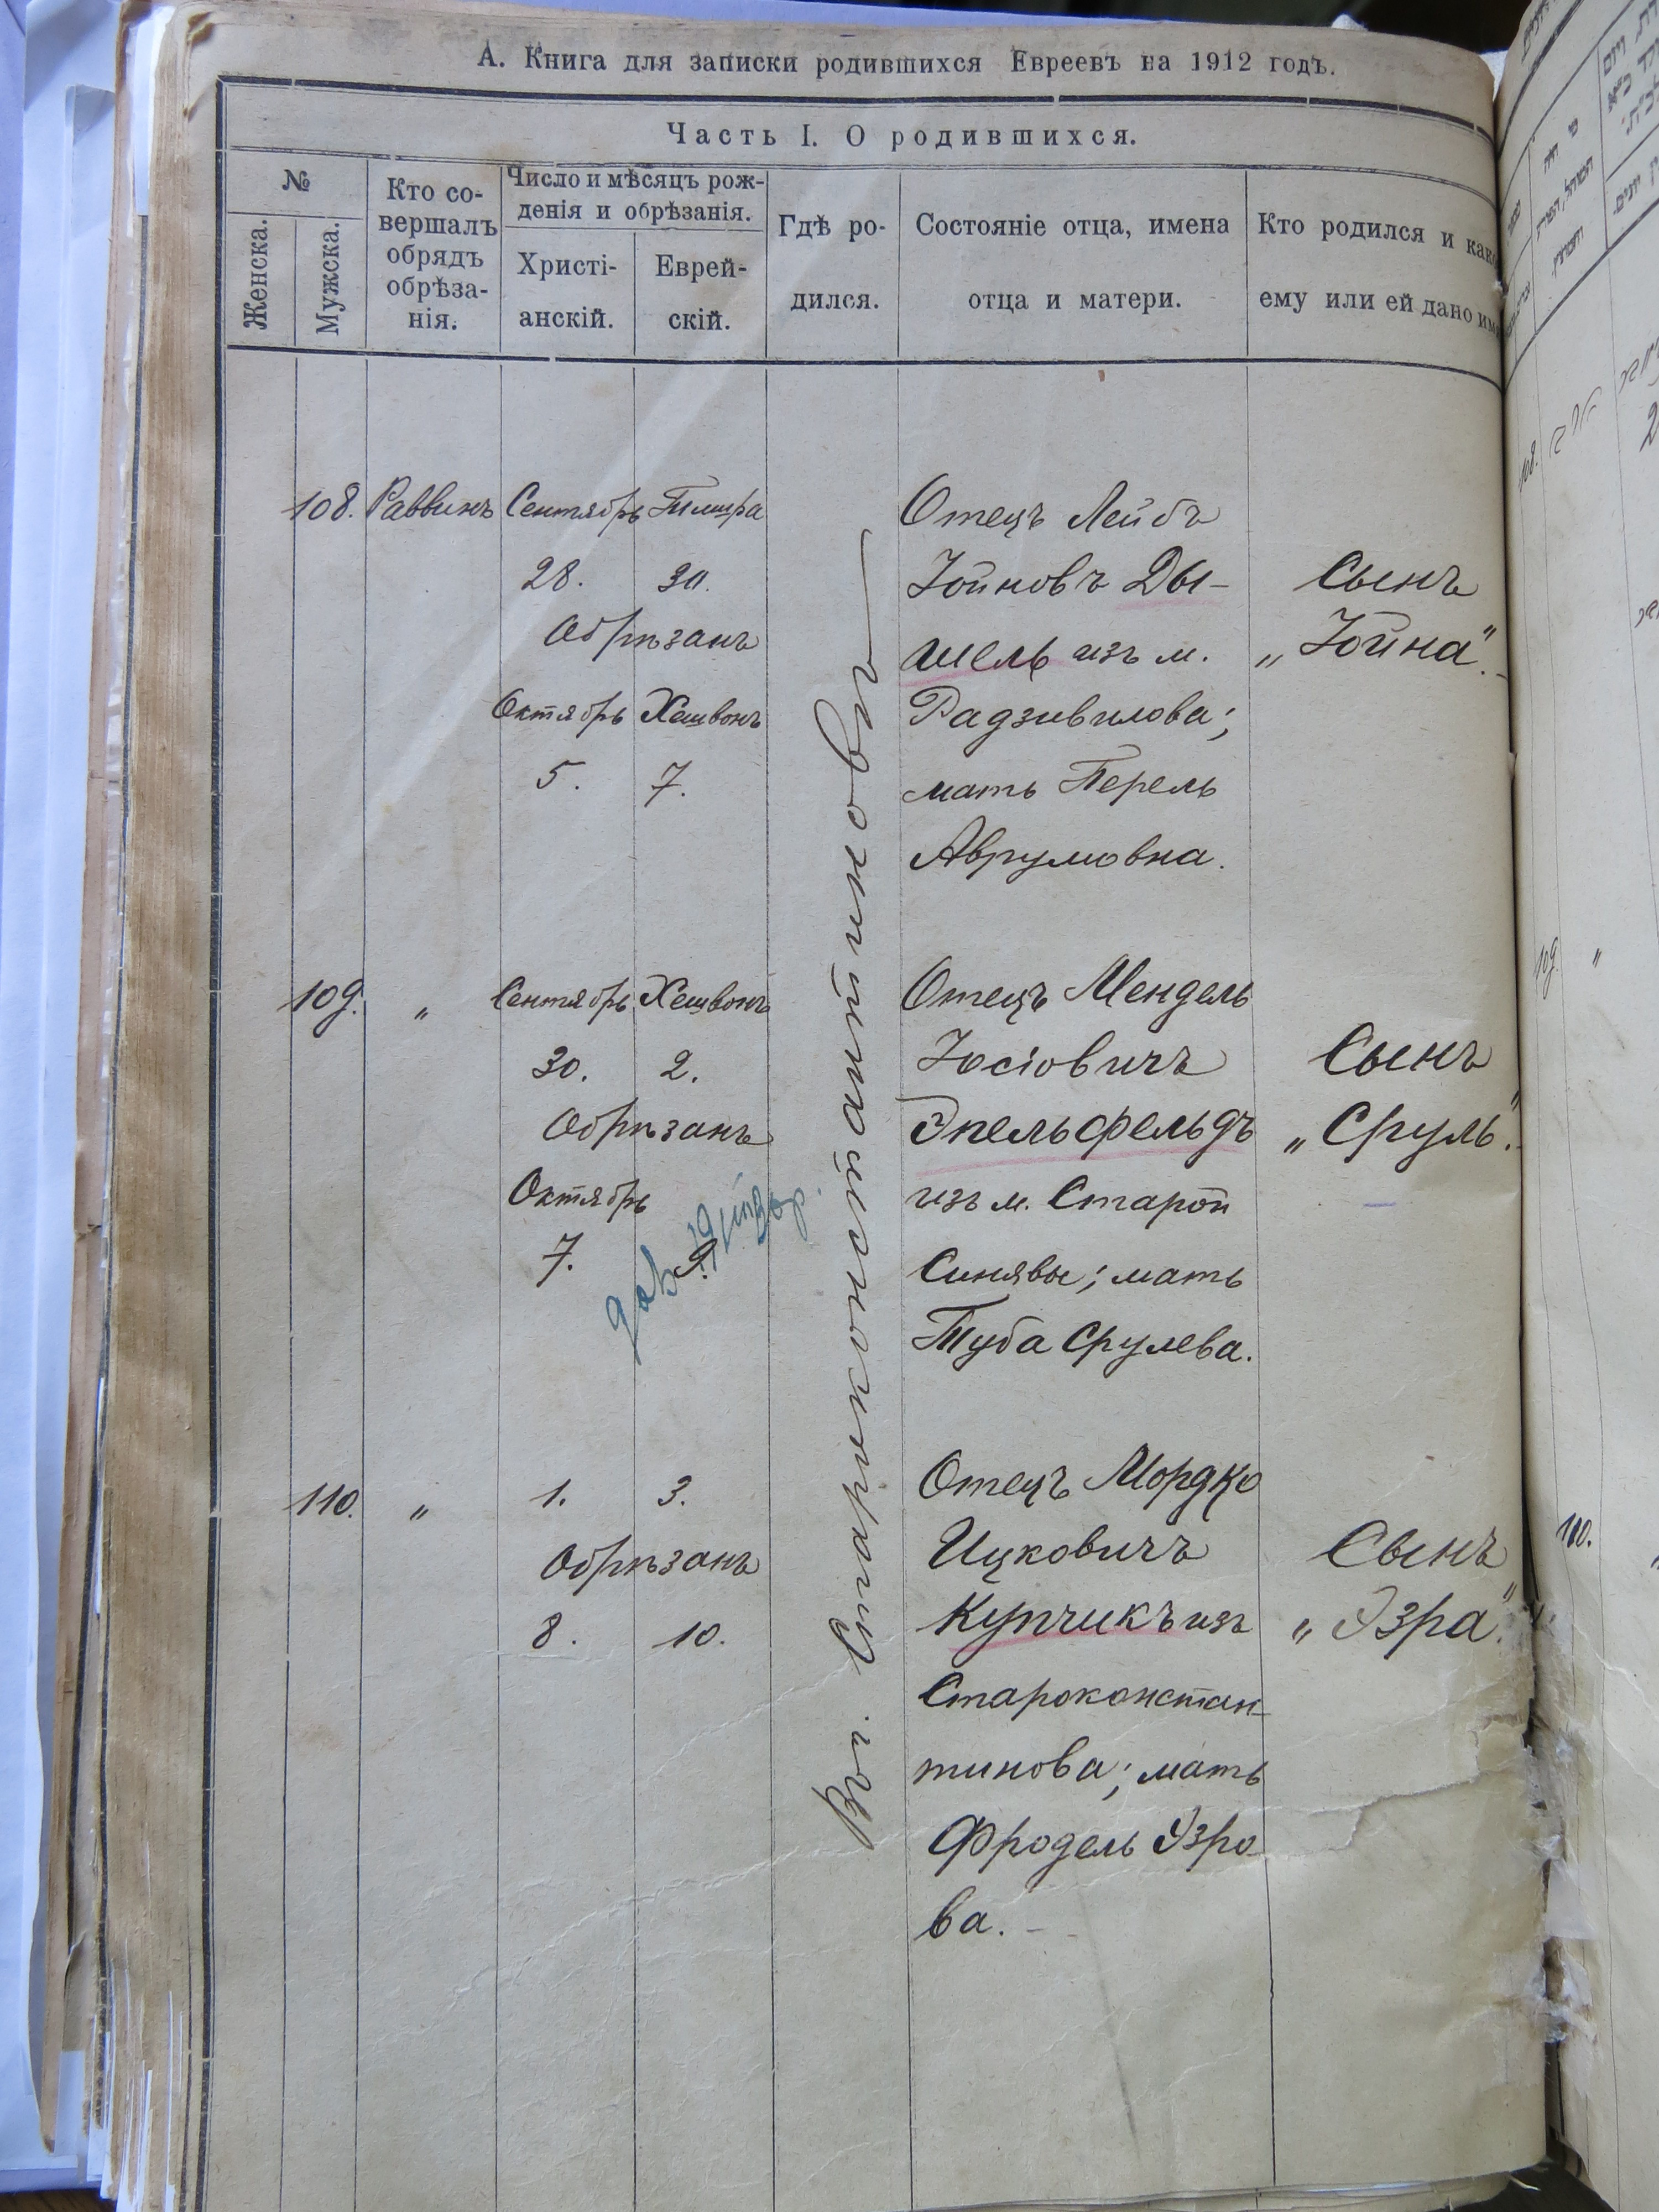 А. Книга для записки родившихся Евреевъ на 1912 годъ.
Часть I. О родившихся.
№
Женска.
Мужска.
Кто со-
вершалъ
обрядъ
обрѣза-
нія.
Число и мѣсяцъ рож-
денія и обрѣзанія.
Христі-
анскій.
Еврей-
скій.
Гдѣ ро-
дился.
Состояніе отца, имена
отца и матери.
Кто родился и како
ему или ей дано имя
108. Раввинъ Сентябрь Тишра
28. 30.
Обрѣзанъ
Октябрь Хешвонъ
5. 7.
Отецъ Лейбъ
Іойновъ Ды-
шель изъ м.
Радзивилова;
мать Перель
Аврумовна.
Сынъ
„Іойна".
Въ г. Староконстантиновѣ
109. „ Сентябрь Хешвонъ
30. 2.
Обрѣзанъ
Октябрь
7. 9.
Отецъ Мендель
Іосіовичъ
Эпельфельдъ
изъ м. Старой
Синявы; мать
Туба Срулева.
Сынъ
„Сруль".
110. „ 1. 3.
Обрѣзанъ
8. 10.
Отецъ Мордко
Ицковичъ
Купчикъ изъ
Староконстан-
тинова; мать
Фродель Эзро-
ва.
Сынъ
„Эзра".
108.
109. „
110.